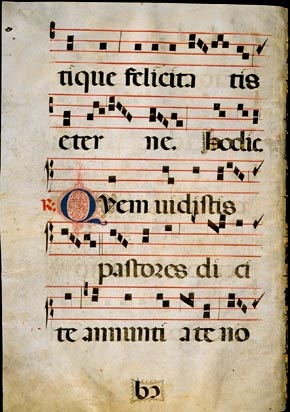 tique felicita tis
eter ne. hodie
R. Quem uidistis
pastores di ci
te annunti ate no
bo